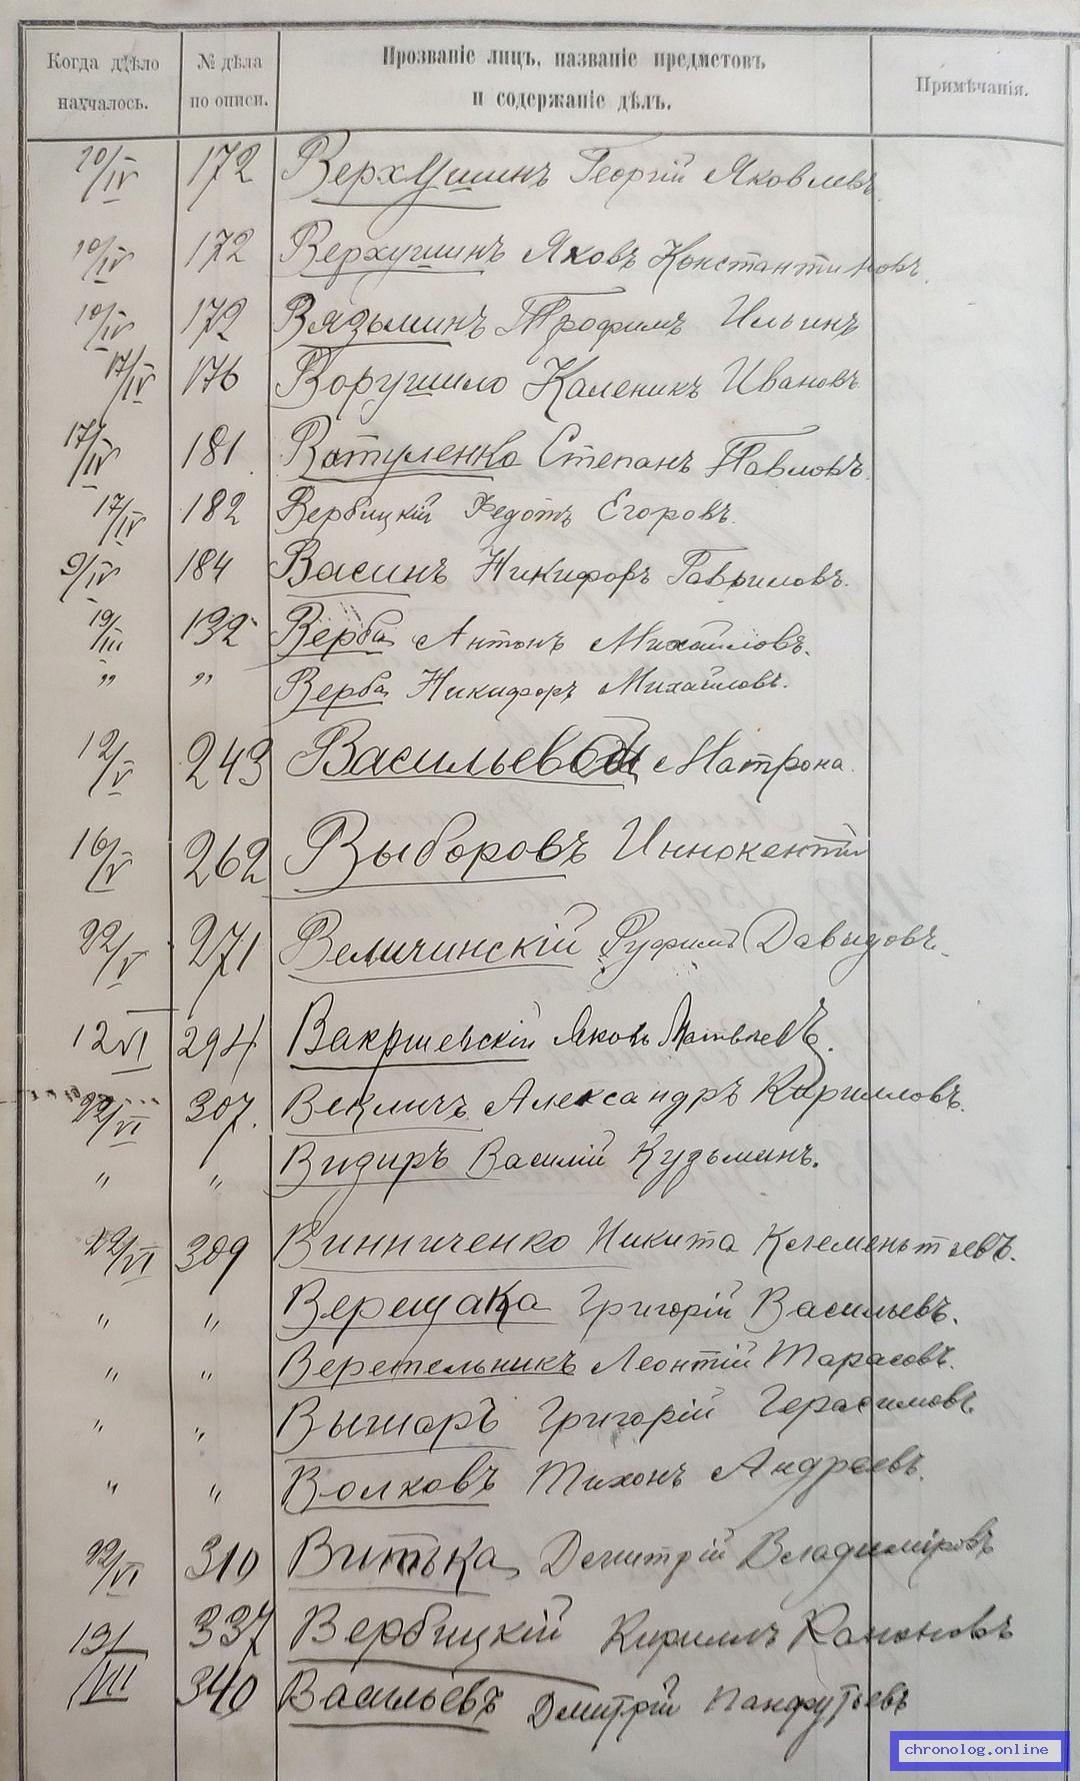 Когда дѣло началось.
№ дѣла по описи.
Прозваніе лицъ, названіе предметовъ
и содержаніе дѣлъ.
Примѣчанія.
10/IV 172 Верхушинъ Георгій Яковлевъ
10/IV 172 Верхушинъ Яковъ Константиновъ.
10/IV 172 Вязьминъ Трофимъ Ильинъ
17/IV 176 Ворушило Каленикъ Ивановъ
17/IV 181 Ватуленко Степанъ Павловъ
17/IV 182 Вербицкій Федотъ Егоровъ.
9/IV 184 Васинъ Никифоръ Гавриловъ.
19/III 132 Верба Антонъ Михайловъ.
" " Верба Никифоръ Михайловъ.
12/V 243 Васильева Матрона.
16/V 262 Выборовъ Иннокентій
22/V 271 Величинскій Руфимъ Давыдовъ.
12 VI 294 Вакршевскій Яковъ Матвѣевъ.
22/VI 307. Векличъ Александръ Кирилловъ.
" " Видиръ Василій Кузьминъ.
22/VI 309 Винниченко Никита Клементьевъ.
" " Верещака Григорій Васильевъ.
" " Веретельникъ Леонтій Тарасовъ.
" " Вышаръ Григорій Герасимовъ.
" " Волковъ Тихонъ Андреевъ.
22/VI 310 Витька Дмитрій Владиміровъ
13/VII 337 Вербицкій Кирилъ Каноновъ
340 Васильевъ Дмитрій Панфутьевъ
chronolog.online